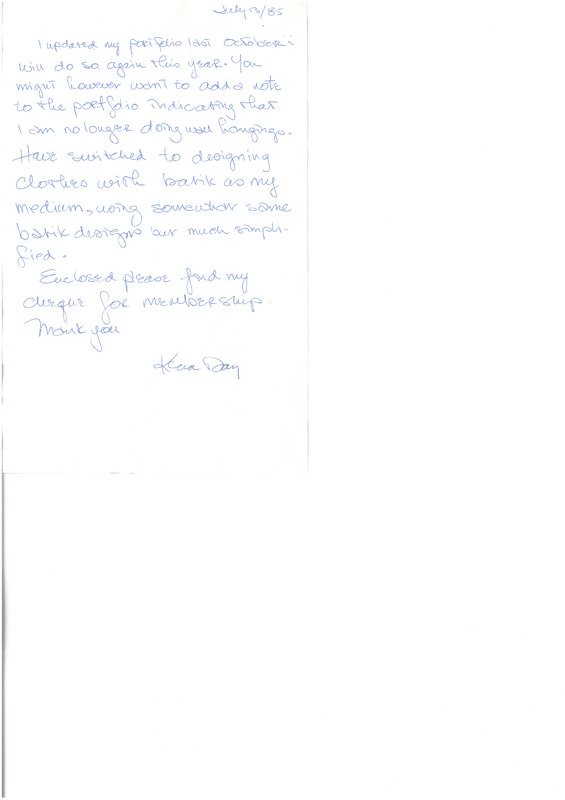 July 13/85
I updated my portfolio last October.
will do so again this year. You
might however want to add a note
to the portfolio indicating that
I am no longer doing wall hangings.
Have switched to designing
clothes with batik as my
medium, using somewhat same
batik designs but much simpli-
fied.
Enclosed please find my
cheque for membership.
Thank you
Day